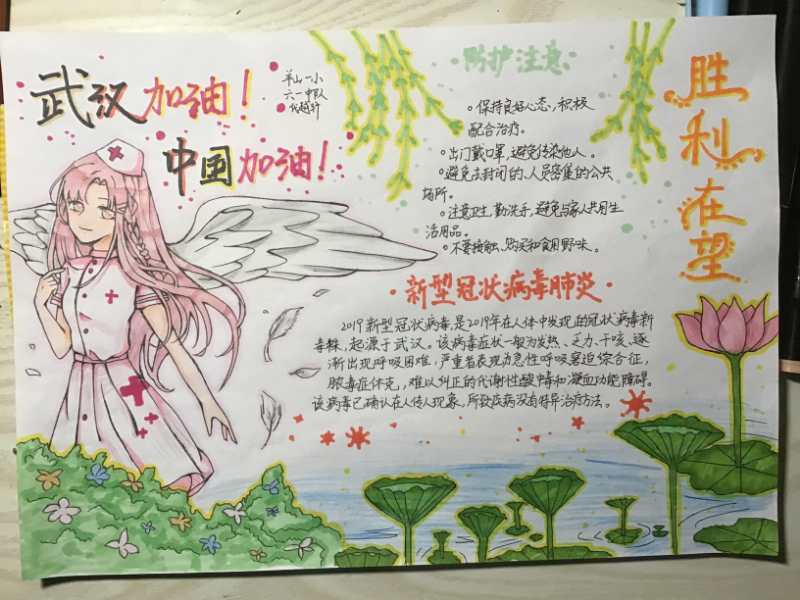 武汉加油！
中国加油！
羊山一小
六一中队
防护注意
保持良好心态，积极
配合治疗。
出门戴口罩，避免传染他人。
避免去封闭的、人员密集的公共
场所。
注意卫生，勤洗手，避免与家人共用生
活用品。
不要接触、购买和食用野味。
胜利在望
·新型冠状病毒肺炎·
2019新型冠状病毒，是2019年在人体中发现的冠状病毒新
毒株，起源于武汉。该病毒症状一般为发热、乏力、干咳、逐
渐出现呼吸困难，严重者表现为急性呼吸窘迫综合征，
脓毒症休克，难以纠正的代谢性酸中毒和凝血功能障碍。
该病毒已确认存在人传人现象，所致疾病没有特异治疗方法。